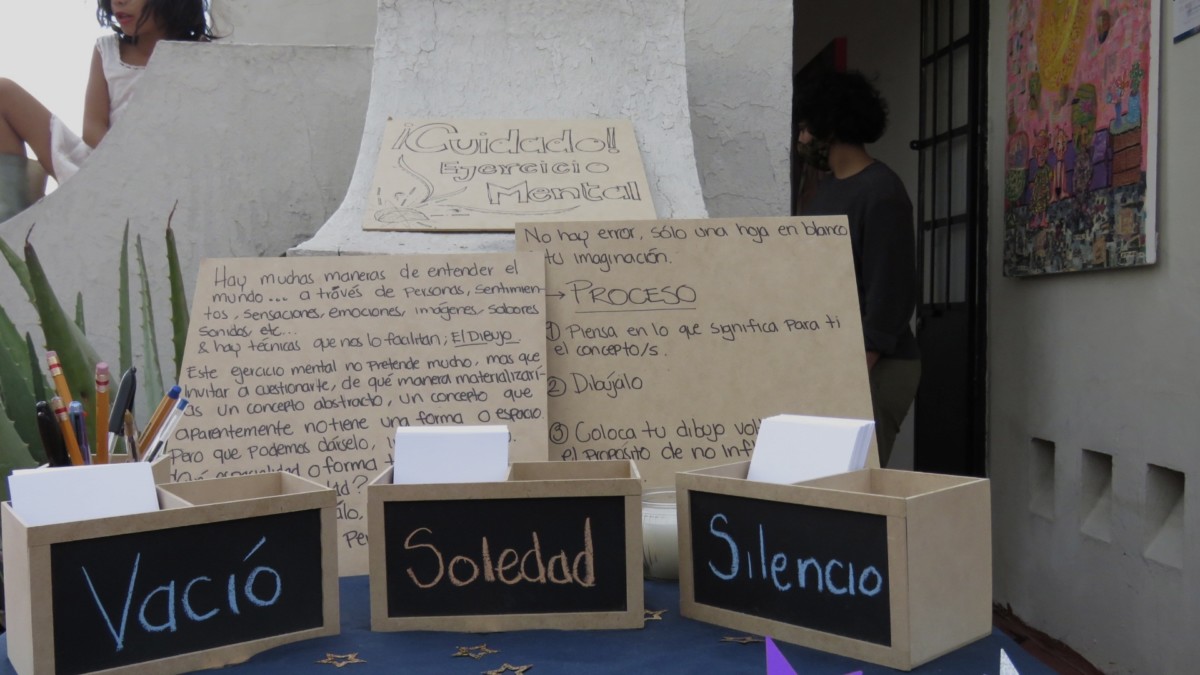 ¡Cuidado!
Ejercicio
Mental
Hay muchas maneras de entender el
mundo... a través de personas, sentimien-
tos, sensaciones, emociones, imágenes, sabores
sonidos etc...
& hay técnicas que nos lo facilitan; El Dibujo.
Este ejercicio mental no pretende mucho, mas que
invitar a cuestionarte, de qué manera materializarí-
as un concepto abstracto, un concepto que
aparentemente no tiene una forma o espacio.
Pero que podemos dárselo,
o forma
No hay error, sólo una hoja en blanco
tu imaginación.
→ PROCESO
① Piensa en lo que significa para ti
el concepto/s.
② Dibújalo
③ Coloca tu dibujo
el propósito de no
Vació
Soledad
Silencio